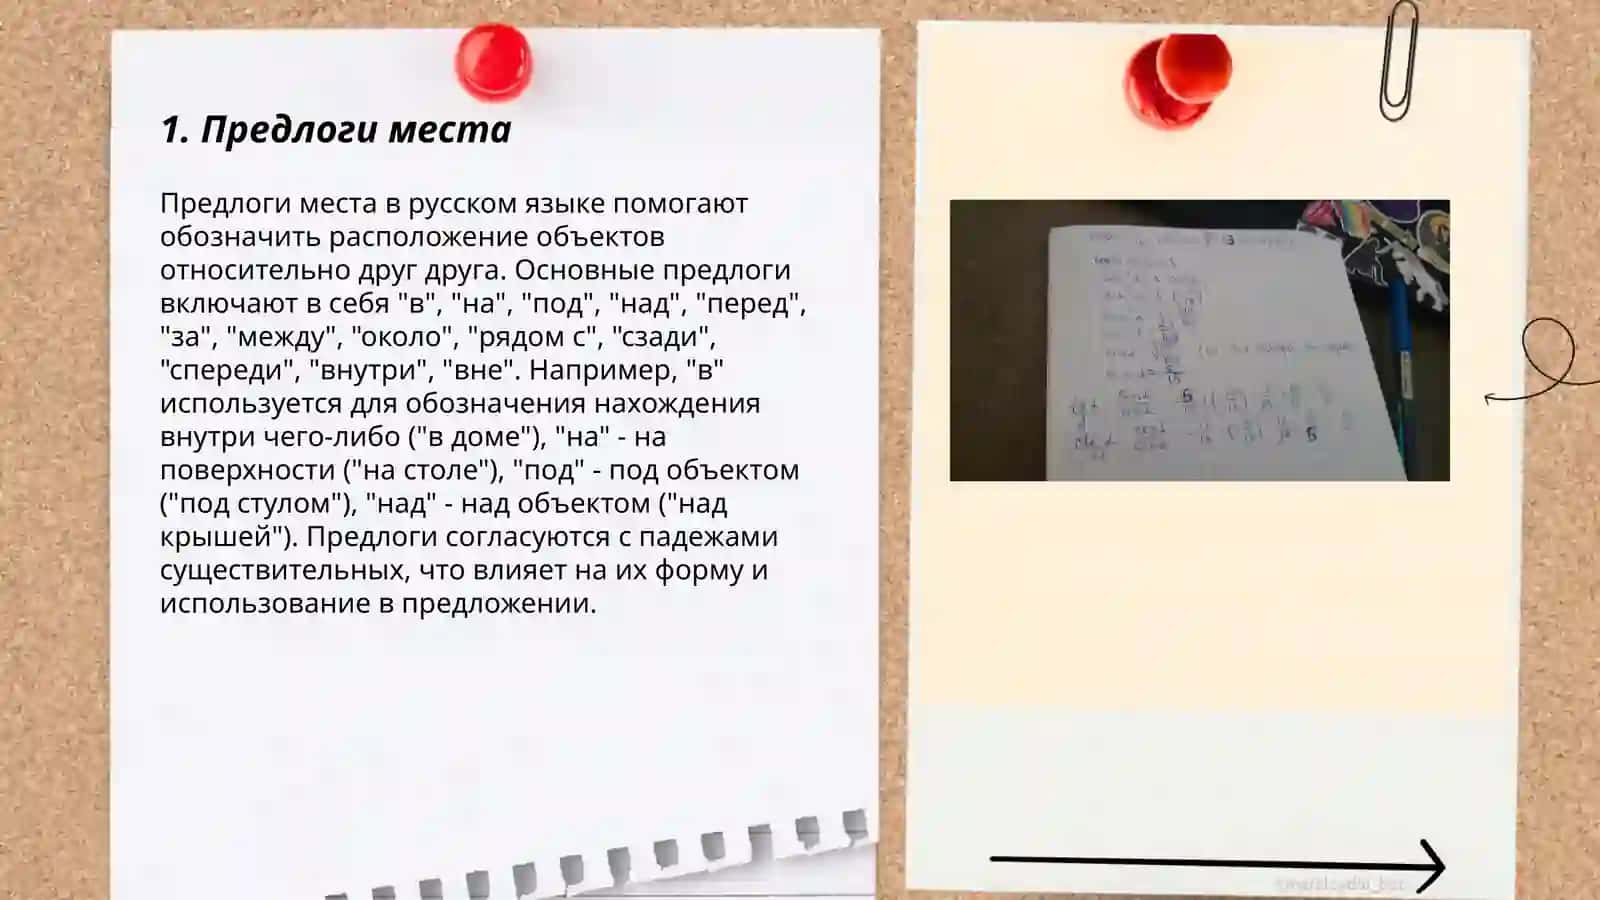 1. Предлоги места
Предлоги места в русском языке помогают
обозначить расположение объектов
относительно друг друга. Основные предлоги
включают в себя "в", "на", "под", "над", "перед",
"за", "между", "около", "рядом с", "сзади",
"спереди", "внутри", "вне". Например, "в"
используется для обозначения нахождения
внутри чего-либо ("в доме"), "на" - на
поверхности ("на столе"), "под" - под объектом
("под стулом"), "над" - над объектом ("над
крышей"). Предлоги согласуются с падежами
существительных, что влияет на их форму и
использование в предложении.